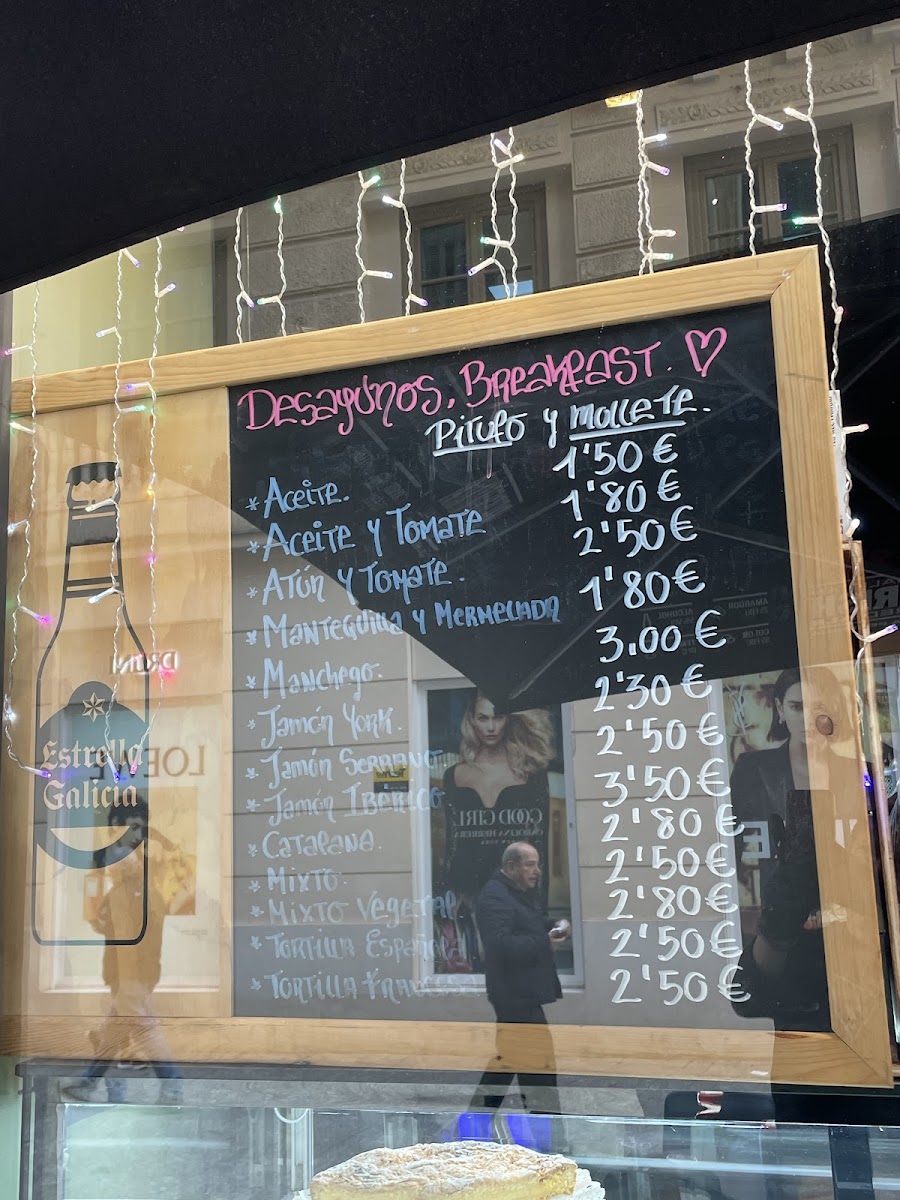 Desayunos, Breakfast. ♡
Pitufo y mollete.
* Aceite. 1'50 €
* Aceite y Tomate 1'80 €
* Atún y Tomate. 2'50 €
* Mantequilla y Mermelada 1'80 €
* Manchego. 3.00 €
* Jamón York. 2'30 €
* Jamón Serrano 2'50 €
* Jamón Iberico 3'50 €
* Catalana 2'80 €
* Mixto. 2'50 €
* Mixto Vegetal 2'80 €
* Tortilla Española 2'50 €
* Tortilla Francesa 2'50 €
Estrella
Galicia
LOEWE
GOOD GIRL
CAROLINA HERRERA